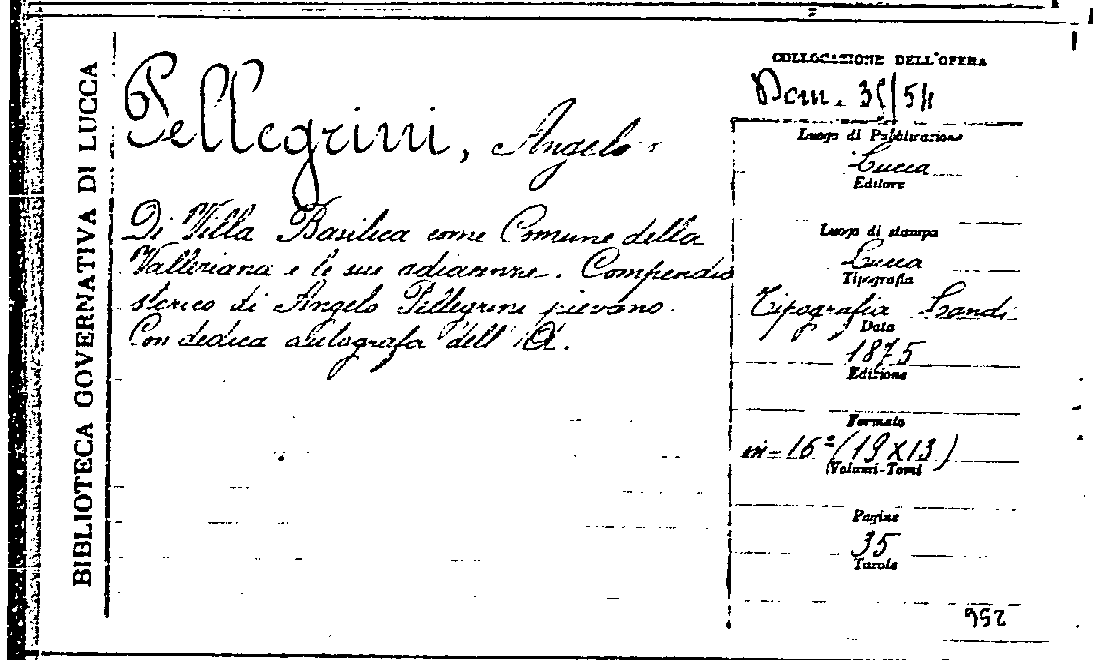 BIBLIOTECA GOVERNATIVA DI LUCCA
Pellegrini, Angelo
Di Villa Basilica come Comune della
Valleriana e le sue adiacenze. Compendio
storico di Angelo Pellegrini pievano.
Con dedica autografa dell'A.
COLLOCAZIONE DELL'OPERA
Dom. 35/54
Luogo di Pubblicazione
Lucca
Editore
Luogo di stampa
Lucca
Tipografia
Tipografia Landi
Data
1875
Edizione
Formato
in-16º (19x13)
Volumi-Tomi
Pagine
35
Tavole
952